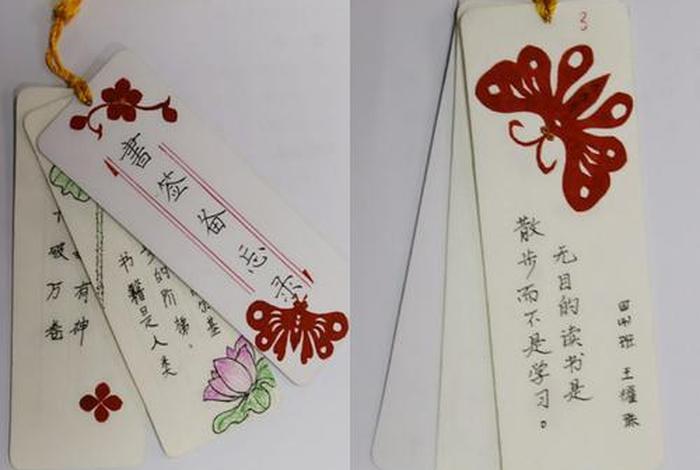 書签备忘录
破万卷
有神
的阶梯。
书籍是人类
3
无目的读书是
散步而不是学习。
四班 王